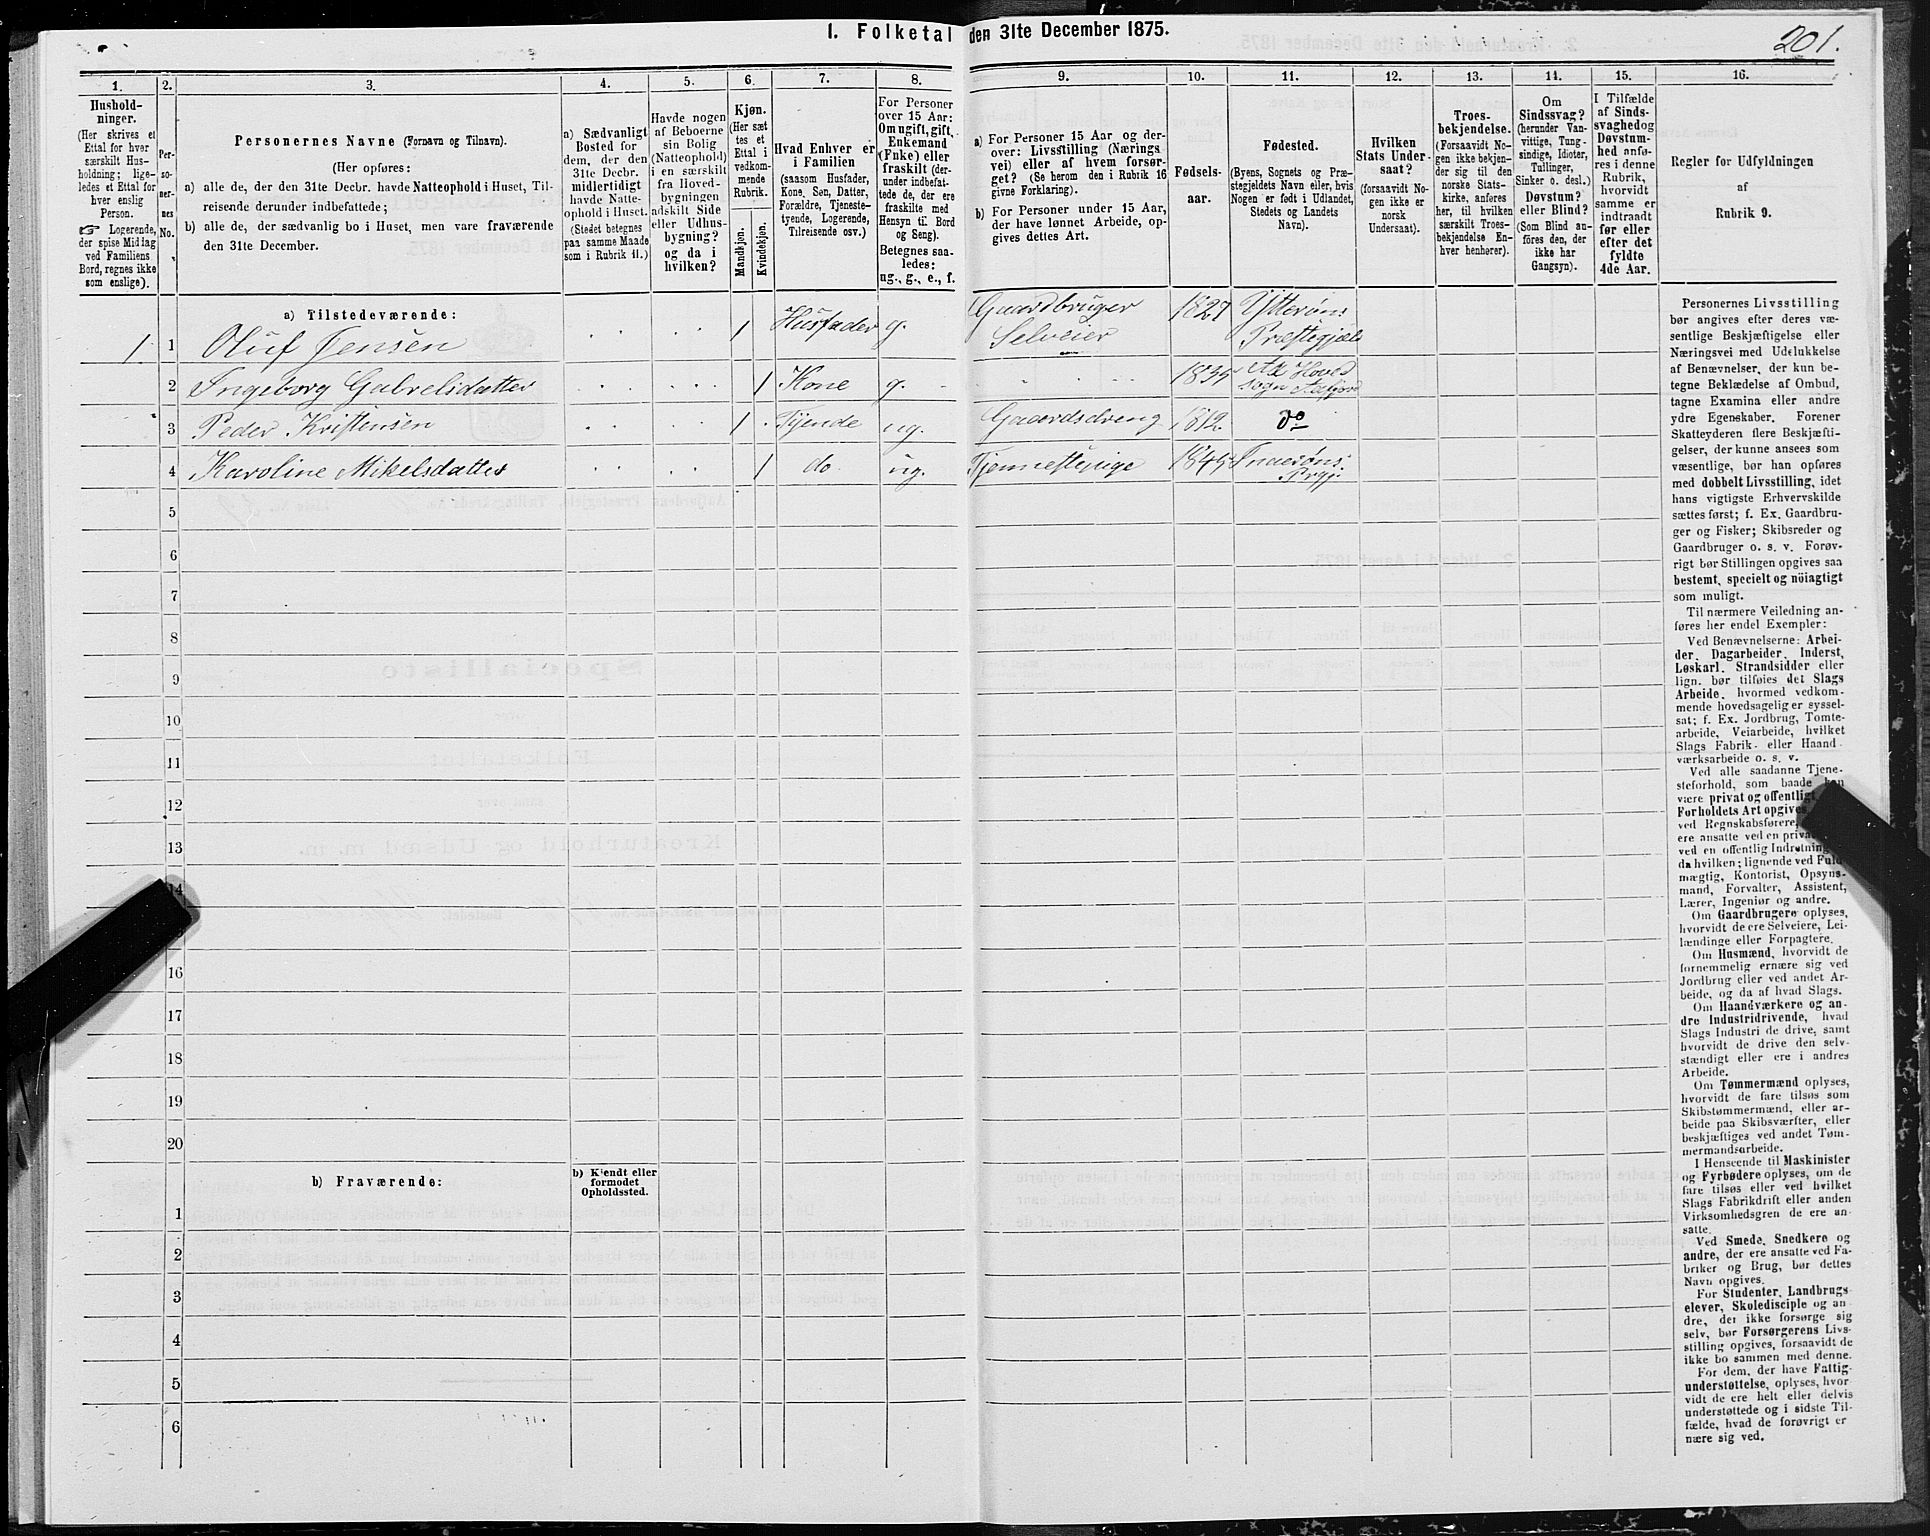 1. Folketal den 31te December 1875.
201.
1.
Hushold-
ninger.
(Her skrives et
Ettal for hver
særskilt Hus-
holdning; lige-
ledes et Ettal for
hver enslig
Person.
☞ Logerende,
der spise Middag
ved Familiens
Bord, regnes ikke
som enslige).
2.
Per-
so-
ner-
nes
No.
3.
Personernes Navne (Fornavn og Tilnavn).
(Her opføres:
a) alle de, der den 31te Decbr. havde Natteophold i Huset, Til-
reisende derunder indbefattede;
b) alle de, der sædvanlig bo i Huset, men vare fraværende
den 31te December.
4.
a) Sædvanligt
Bosted for
dem, der den
31te Decbr.
midlertidigt
havde Natte-
ophold i Huset.
(Stedet betegnes
paa samme Maade
som i Rubrik 11.)
5.
Havde nogen
af Beboerne
sin Bolig
(Natteophold)
i en særskilt
fra Hoved-
bygningen
adskilt Side
eller Udhus-
bygning?
og da i
hvilken?
6.
Kjøn.
(Her sæt
tes et
Ettal i
vedkom-
mende
Rubrik.
Mandkjøn.
Kvindekjøn.
7.
Hvad Enhver er
i Familien
(saasom Husfader,
Kone, Søn, Datter,
Forældre, Tjeneste-
tyende, Logerende,
Tilreisende osv.)
8.
For Personer
over 15 Aar:
Om ugift, gift,
Enkemand
(Enke) eller
fraskilt (der-
under indbefat-
tede de, der ere
fraskilte med
Hensyn til Bord
og Seng).
Betegnes saa-
ledes:
ug., g., e., f.
9.
a) For Personer 15 Aar og der-
over: Livsstilling (Nærings
vei) eller af hvem forsør-
get? (Se herom den i Rubrik 16
givne Forklaring).
b) For Personer under 15 Aar,
der have lønnet Arbeide, op-
gives dettes Art.
10.
Fødsels-
aar.
11.
Fødested.
(Byens, Sognets og Præ-
stegjeldets Navn eller, hvis
Nogen er født i Udlandet,
Stedets og Landets
Navn).
12.
Hvilken
Stats Under-
saat?
(forsaavidt No-
gen ikke er
norsk
Undersaat).
13.
Troes-
bekjendelse.
(Forsaavidt No-
gen ikke bekjen-
der sig til den
norske Stats-
kirke, anføres
her, til hvilken
særskilt Troes-
bekjendelse En-
hver henhører).
14.
Om
Sindssvag?
(herunder Van-
vittige, Tung-
sindige, Idioter,
Tullinger,
Sinker o. desl.)
Døvstum?
eller Blind?
(Som Blind an-
føres den, der
ikke har
Gangsyn).
15.
I Tilfælde
af Sinds-
svaghed og
Døvstum-
hed anfø-
res i denne
Rubrik,
hvorvidt
samme er
indtraadt
før eller
efter det
fyldte
4de Aar.
16.
Regler for Udfyldningen
af
Rubrik 9.
a) Tilstedeværende:
1 1 Oluf Jensen 1 Husfader g. Gaardbruger Selveier 1827 Ytterøns Præstegjæld
2 Ingeborg Gabrelsdatter 1 Kone g. 1835 Aa Hoved sogn Aafjord
3 Peder Kristensen 1 Tjende ug. Gaardsdreng 1812 do
4 Karoline Mikelsdatter 1 do ug. Tjennestepige 1845 Inderøns Prgj.
5
6
7
8
9
10
11
12
13
14
16
17
18
19
20
b) Fraværende:
b) Kjendt eller
formodet
Opholdssted.
1
2
3
4
5
6
Personernes Livsstilling
bør angives efter deres væ-
sentlige Beskjæftigelse eller
Næringsvei med Udelukkelse
af Benævnelser, der kun be-
tegne Beklædelse af Ombud,
tagne Examina eller andre
ydre Egenskaber. Forener
Skatteyderen flere Beskjæfti-
gelser, der kunne ansees som
væsentlige, bør han opføres
med dobbelt Livsstilling, idet
hans vigtigste Erhvervskilde
sættes først; f. Ex. Gaardbru-
ger og Fisker; Skibsreder og
Gaardbruger o. s. v. Forøv-
rigt bør Stillingen opgives saa
bestemt, specielt og nöiagtigt
som muligt.
Til nærmere Veiledning an-
føres her endel Exempler:
Ved Benævnelserne: Arbei-
der, Dagarbeider, Inderst,
Løskarl, Strandsidder eller
lign. bør tilføies det Slags
Arbeide, hvormed vedkom-
mende hovedsagelig er syssel-
sat; f. Ex. Jordbrug, Tomte-
arbeide, Veiarbeide, hvilket
Slags Fabrik- eller Haand
værksarbeide o. s. v.
Ved alle saadanne Tjene-
steforhold, som baade kan
være privat og offentligt,
Forholdets Art opgives,
ved Regnskabsførere,
ere ansatte ved en priva
ved en offentlig Indretning
da hvilken; lignende ved Fuld
mægtig, Kontorist, Opsyns-
mand, Forvalter, Assistent,
Lærer, Ingeniør og andre.
Om Gaardbrugere oplyses,
hvorvidt de ere Selveiere, Lei-
lændinge eller Forpagtere.
Om Husmænd, hvorvidt de
fornemmelig ernære sig ved
Jordbrug eller ved andet Ar-
beide, og da af hvad Slags.
Om Haandværkere og an-
dre Industridrivende, hvad
Slags Industri de drive, samt
hvorvidt de drive den selv-
stændigt eller ere i andres
Arbeide.
Om Tømmermænd oplyses,
hvorvidt de fare tilsøs som
Skibstømmermænd, eller ar-
beide paa Skibsværfter, eller
beskjæftiges ved andet Tøm-
mermandsarbeide.
I Henseende til Maskinister
og Fyrbødere oplyses, om de
fare tilsøs eller ved hvilket
Slags Fabrikdrift eller anden
Virksomhedsgren de ere an-
satte.
Ved Smede, Snedkere og
andre, der ere ansatte ved Fa-
briker og Brug, bør dettes
Navn opgives.
For Studenter, Landbrugs
elever, Skoledisciple og an-
dre, der ikke forsørge sig
selv, bør Forsørgerens Livs-
stilling opgives, forsaavidt de
ikke bo sammen med denne.
For dem, der have Fattig-
understøttelse, oplyses, hvor-
vidt de ere helt eller delvis
understøttede og i sidste Til-
fælde, hvad de forøvrigt er
nære sig ved.